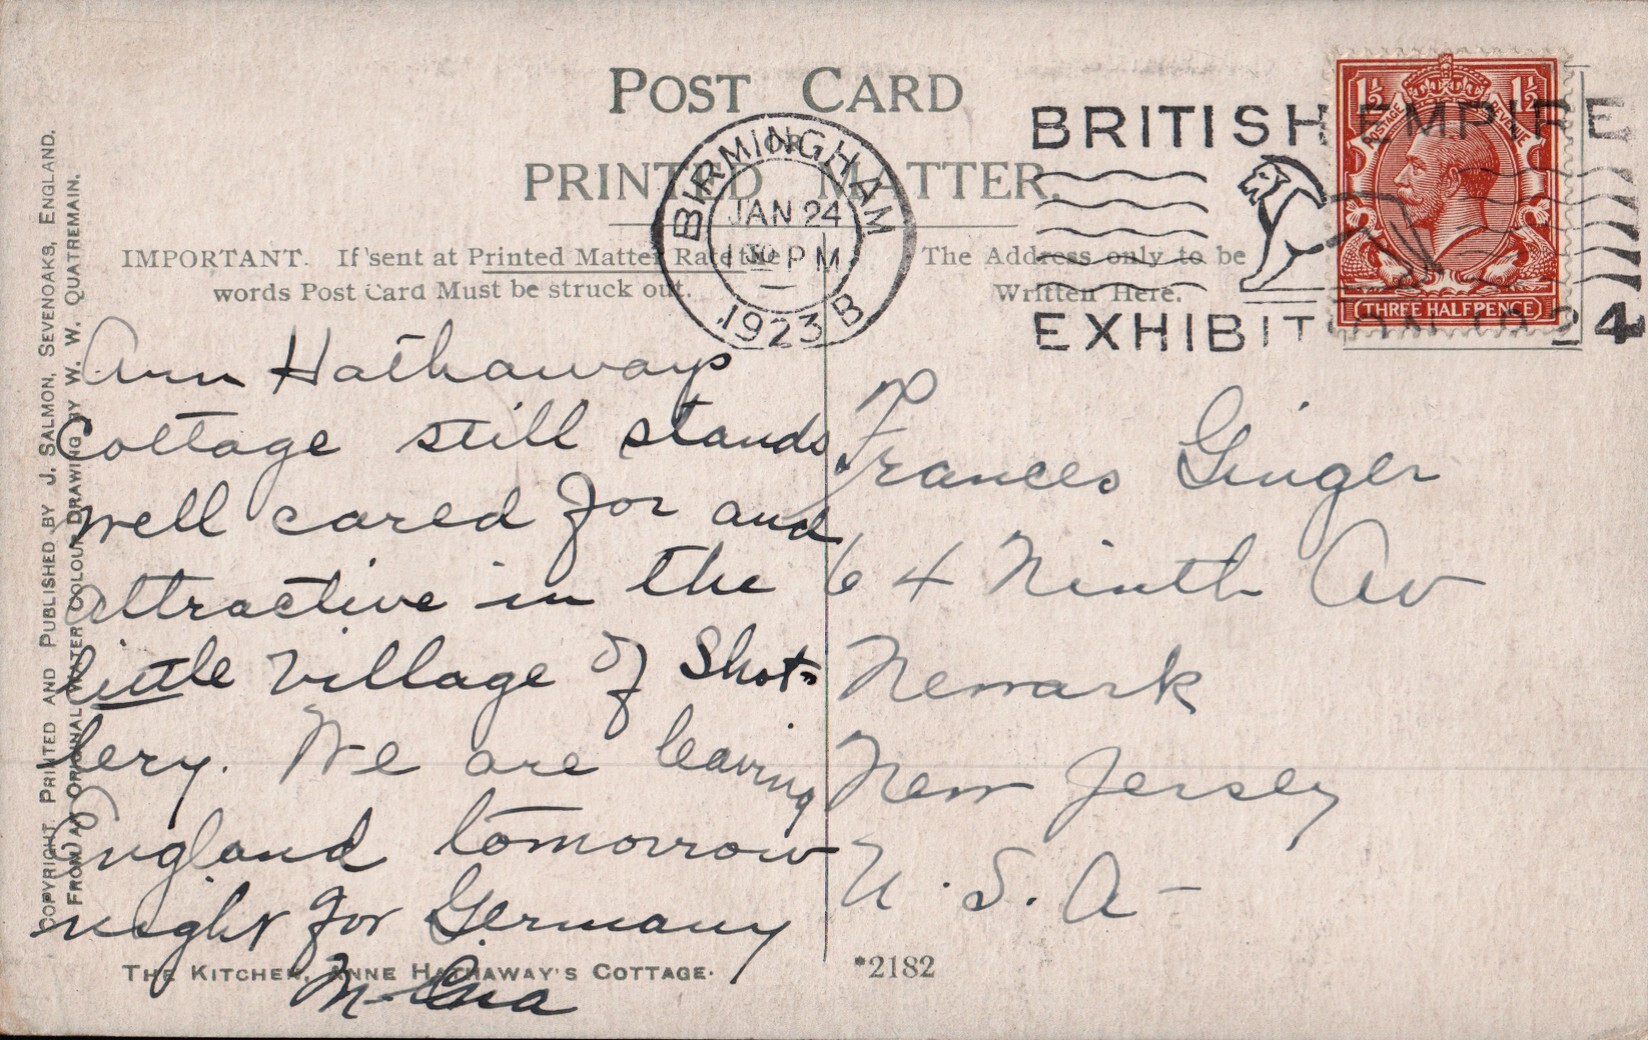 POST CARD
OR
PRINTED MATTER.
IMPORTANT. If sent at Printed Matter Rate the
words Post Card Must be struck out.
The Address only to be
Written Here.
BIRMINGHAM
JAN 24
1 30 PM
1923 B
BRITISH EMPIRE
EXHIBITION 1924
1½ 1½
POSTAGE REVENUE
THREE HALFPENCE
Ann Hathaways
Cottage still stands
well cared for and
attractive in the
little village of Shot-
tery. We are leaving
England tomorrow
night for Germany
Frances Ginger
64 Ninth Av
Newark
New Jersey
U. S. A-
THE KITCHEN, ANNE HATHAWAY'S COTTAGE.
*2182
COPYRIGHT. PRINTED AND PUBLISHED BY J. SALMON, SEVENOAKS, ENGLAND.
FROM AN ORIGINAL WATER COLOUR DRAWING BY W. W. QUATREMAIN.